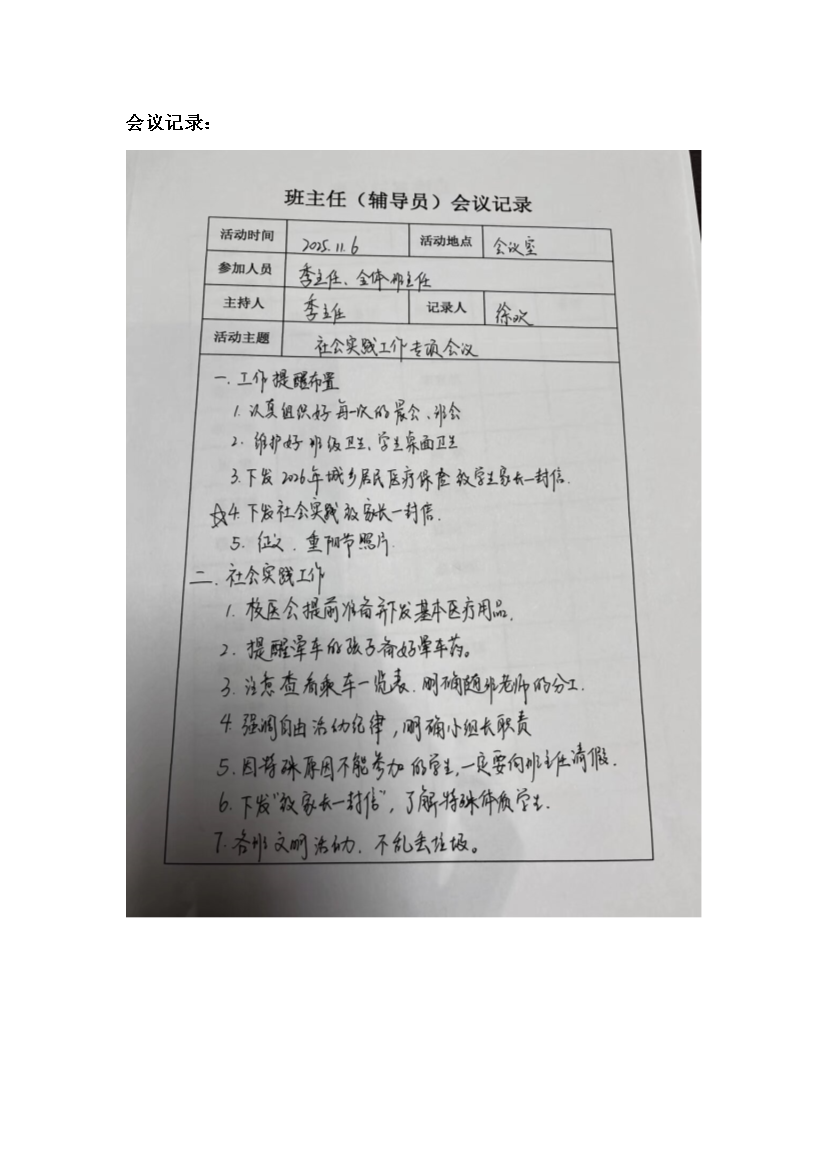 会议记录：
班主任（辅导员）会议记录
活动时间 2025.11.6 活动地点 会议室
参加人员 季主任、全体班主任
主持人 季主任 记录人 徐欢
活动主题 社会实践工作专项会议
一.工作提醒布置
1.认真组织好每一次的晨会、班会
2.维护好班级卫生、学生桌面卫生
3.下发2026年城乡居民医疗保险致学生家长一封信.
☆4.下发社会实践致家长一封信.
5.征文、重阳节照片.
二.社会实践工作
1.校医会提前准备并下发基本医疗用品.
2.提醒晕车的孩子备好晕车药。
3.注意查看乘车一览表.明确随班老师的分工.
4.强调自由活动纪律，明确小组长职责
5.因特殊原因不能参加的学生,一定要向班主任请假.
6.下发“致家长一封信”，了解特殊体质学生.
7.各班文明活动.不乱丢垃圾。